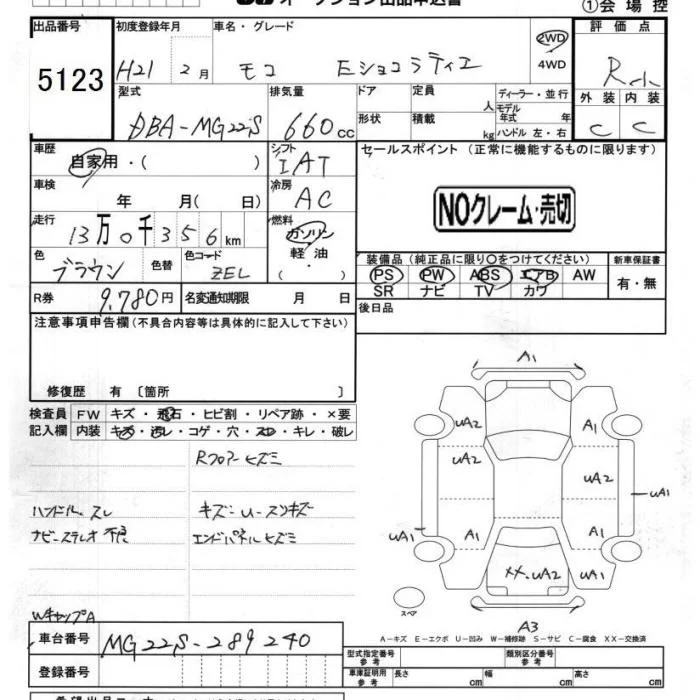 オークション出品申込書
①会場控
出品番号 初度登録年月 車名・グレード 評価点
5123 H21 2月 モコ Eショコラティエ 2WD 4WD R小
型式 排気量 ドア 定員 人 ディーラー・並行 外装 内装
DBA-MG22S 660cc 形状 積載 kg モデル年式 年 ハンドル 左・右 C C
車歴 シフト セールスポイント (正常に機能するものに限ります)
自家用・( ) IAT
車検 冷房 NOクレーム・売切
年 月( 日) AC
走行 燃料
13万0千356km ガソリン
軽油・( )
色 色替 色コード 装備品(純正品に限り○をつけてください) 新車保証書
ブラウン ZEL PS PW ABS エアB AW 有・無
SR ナビ TV カワ
R券 9,780円 名変通知期限 月 日 後日品
注意事項申告欄(不具合内容等は具体的に記入して下さい)
修復歴 有〔箇所 〕
検査員 FW キズ・飛石・ヒビ割・リペア跡・×要
記入欄 内装 キズ・汚レ・コゲ・穴・スレ・キレ・破レ
Rフロアーヒズミ
ハンドル.スレ キズ・U・スリキズ
ナビーステレオ 不良 エンドパネルヒズミ
WキャップA
A1
uA2 A1
uA2 uA2
uA1
uA1 A1 A1
XX.uA2 uA1
スペア
A3
A-キズ E-エクボ U-凹み W-補修跡 S-サビ C-腐食 XX-交換済
車台番号 MG22S-289240
型式指定番号 参考 類別区分番号 参考
登録番号 車庫証明用 参考 長さ cm 幅 cm 高さ cm